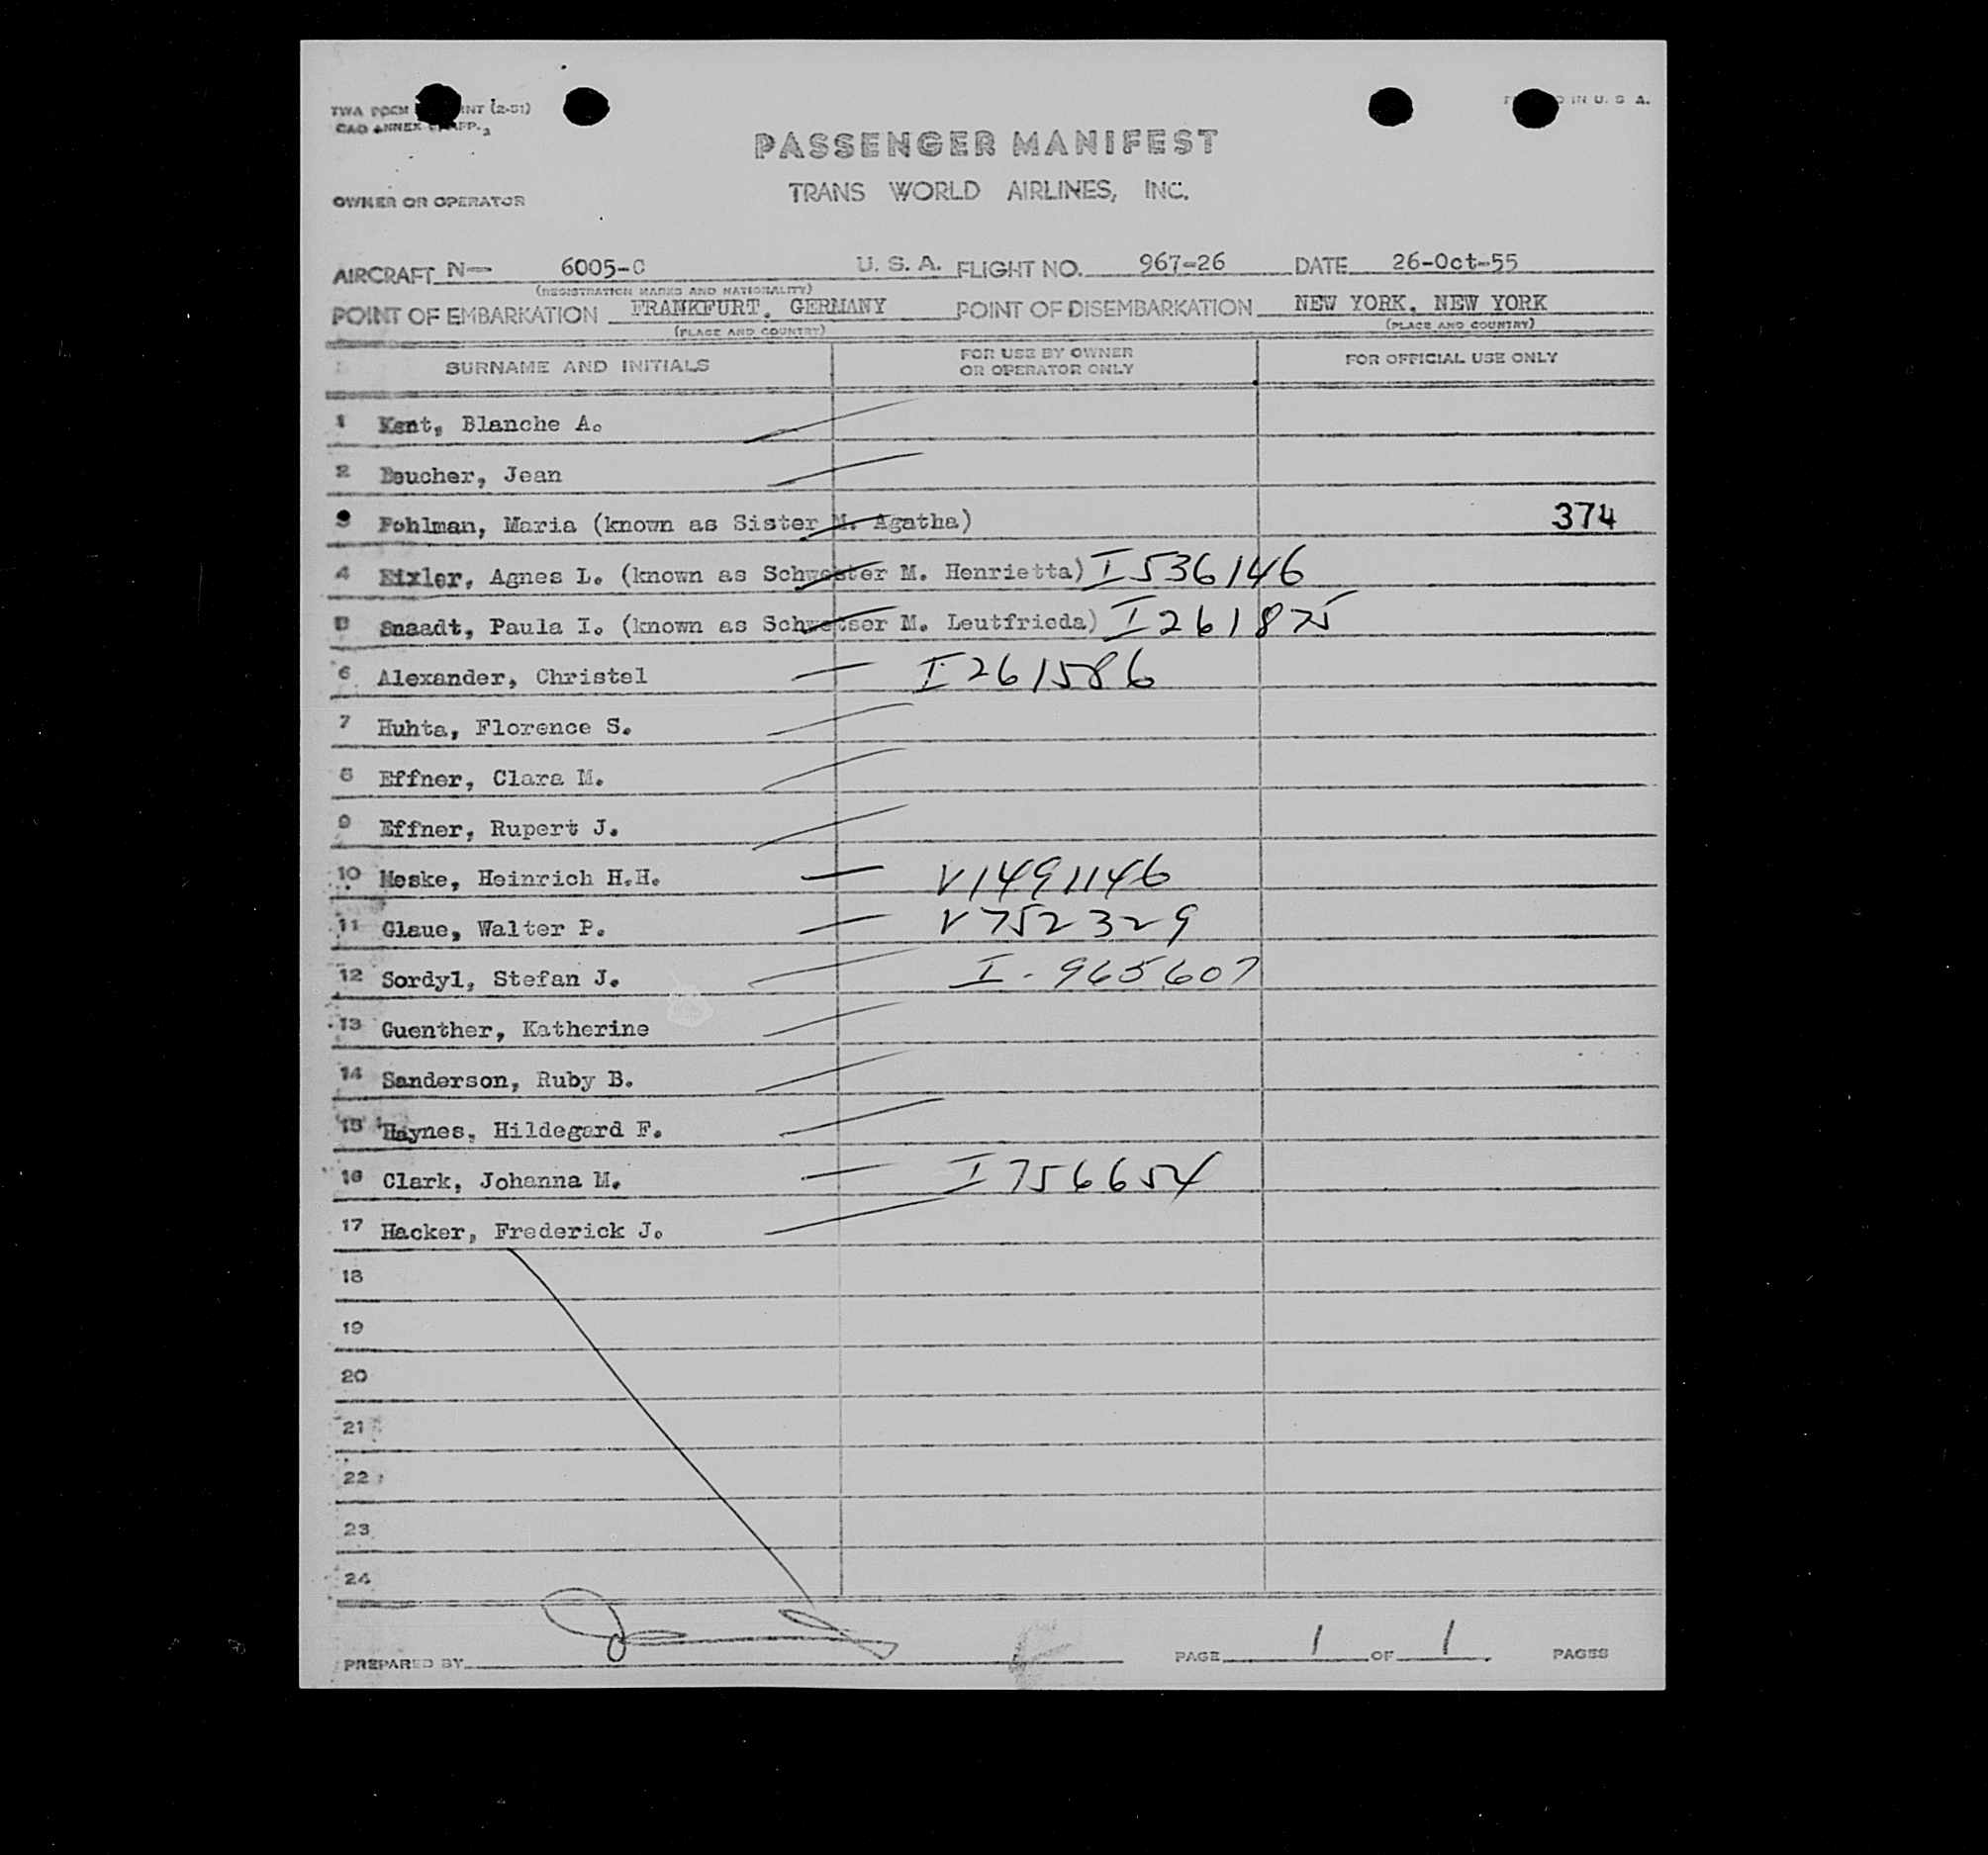 TWA FORM INT (2-51)
CAO ANNEX APP. 3
IN U. S. A.
PASSENGER MANIFEST
OWNER OR OPERATOR
TRANS WORLD AIRLINES, INC.
AIRCRAFT N— 6005-C U. S. A. FLIGHT NO. 967-26 DATE 26-Oct-55
(REGISTRATION MARKS AND NATIONALITY)
POINT OF EMBARKATION FRANKFURT, GERMANY POINT OF DISEMBARKATION NEW YORK, NEW YORK
(PLACE AND COUNTRY) (PLACE AND COUNTRY)
SURNAME AND INITIALS FOR USE BY OWNER OR OPERATOR ONLY FOR OFFICIAL USE ONLY
1 Kent, Blanche A.
2 Boucher, Jean
3 Pohlman, Maria (known as Sister M. Agatha) 374
4 Eixler, Agnes L. (known as Schwester M. Henrietta) I536146
5 Snaadt, Paula I. (known as Schwetser M. Leutfrieda) I261875
6 Alexander, Christel I261586
7 Huhta, Florence S.
8 Effner, Clara M.
9 Effner, Rupert J.
10 Meske, Heinrich H.H. V1491146
11 Glaue, Walter P. V752329
12 Sordyl, Stefan J. I-965607
13 Guenther, Katherine
14 Sanderson, Ruby B.
15 Haynes, Hildegard F.
16 Clark, Johanna M. I756654
17 Hacker, Frederick J.
18
19
20
21
22
23
24
PREPARED BY PAGE 1 OF 1 PAGES